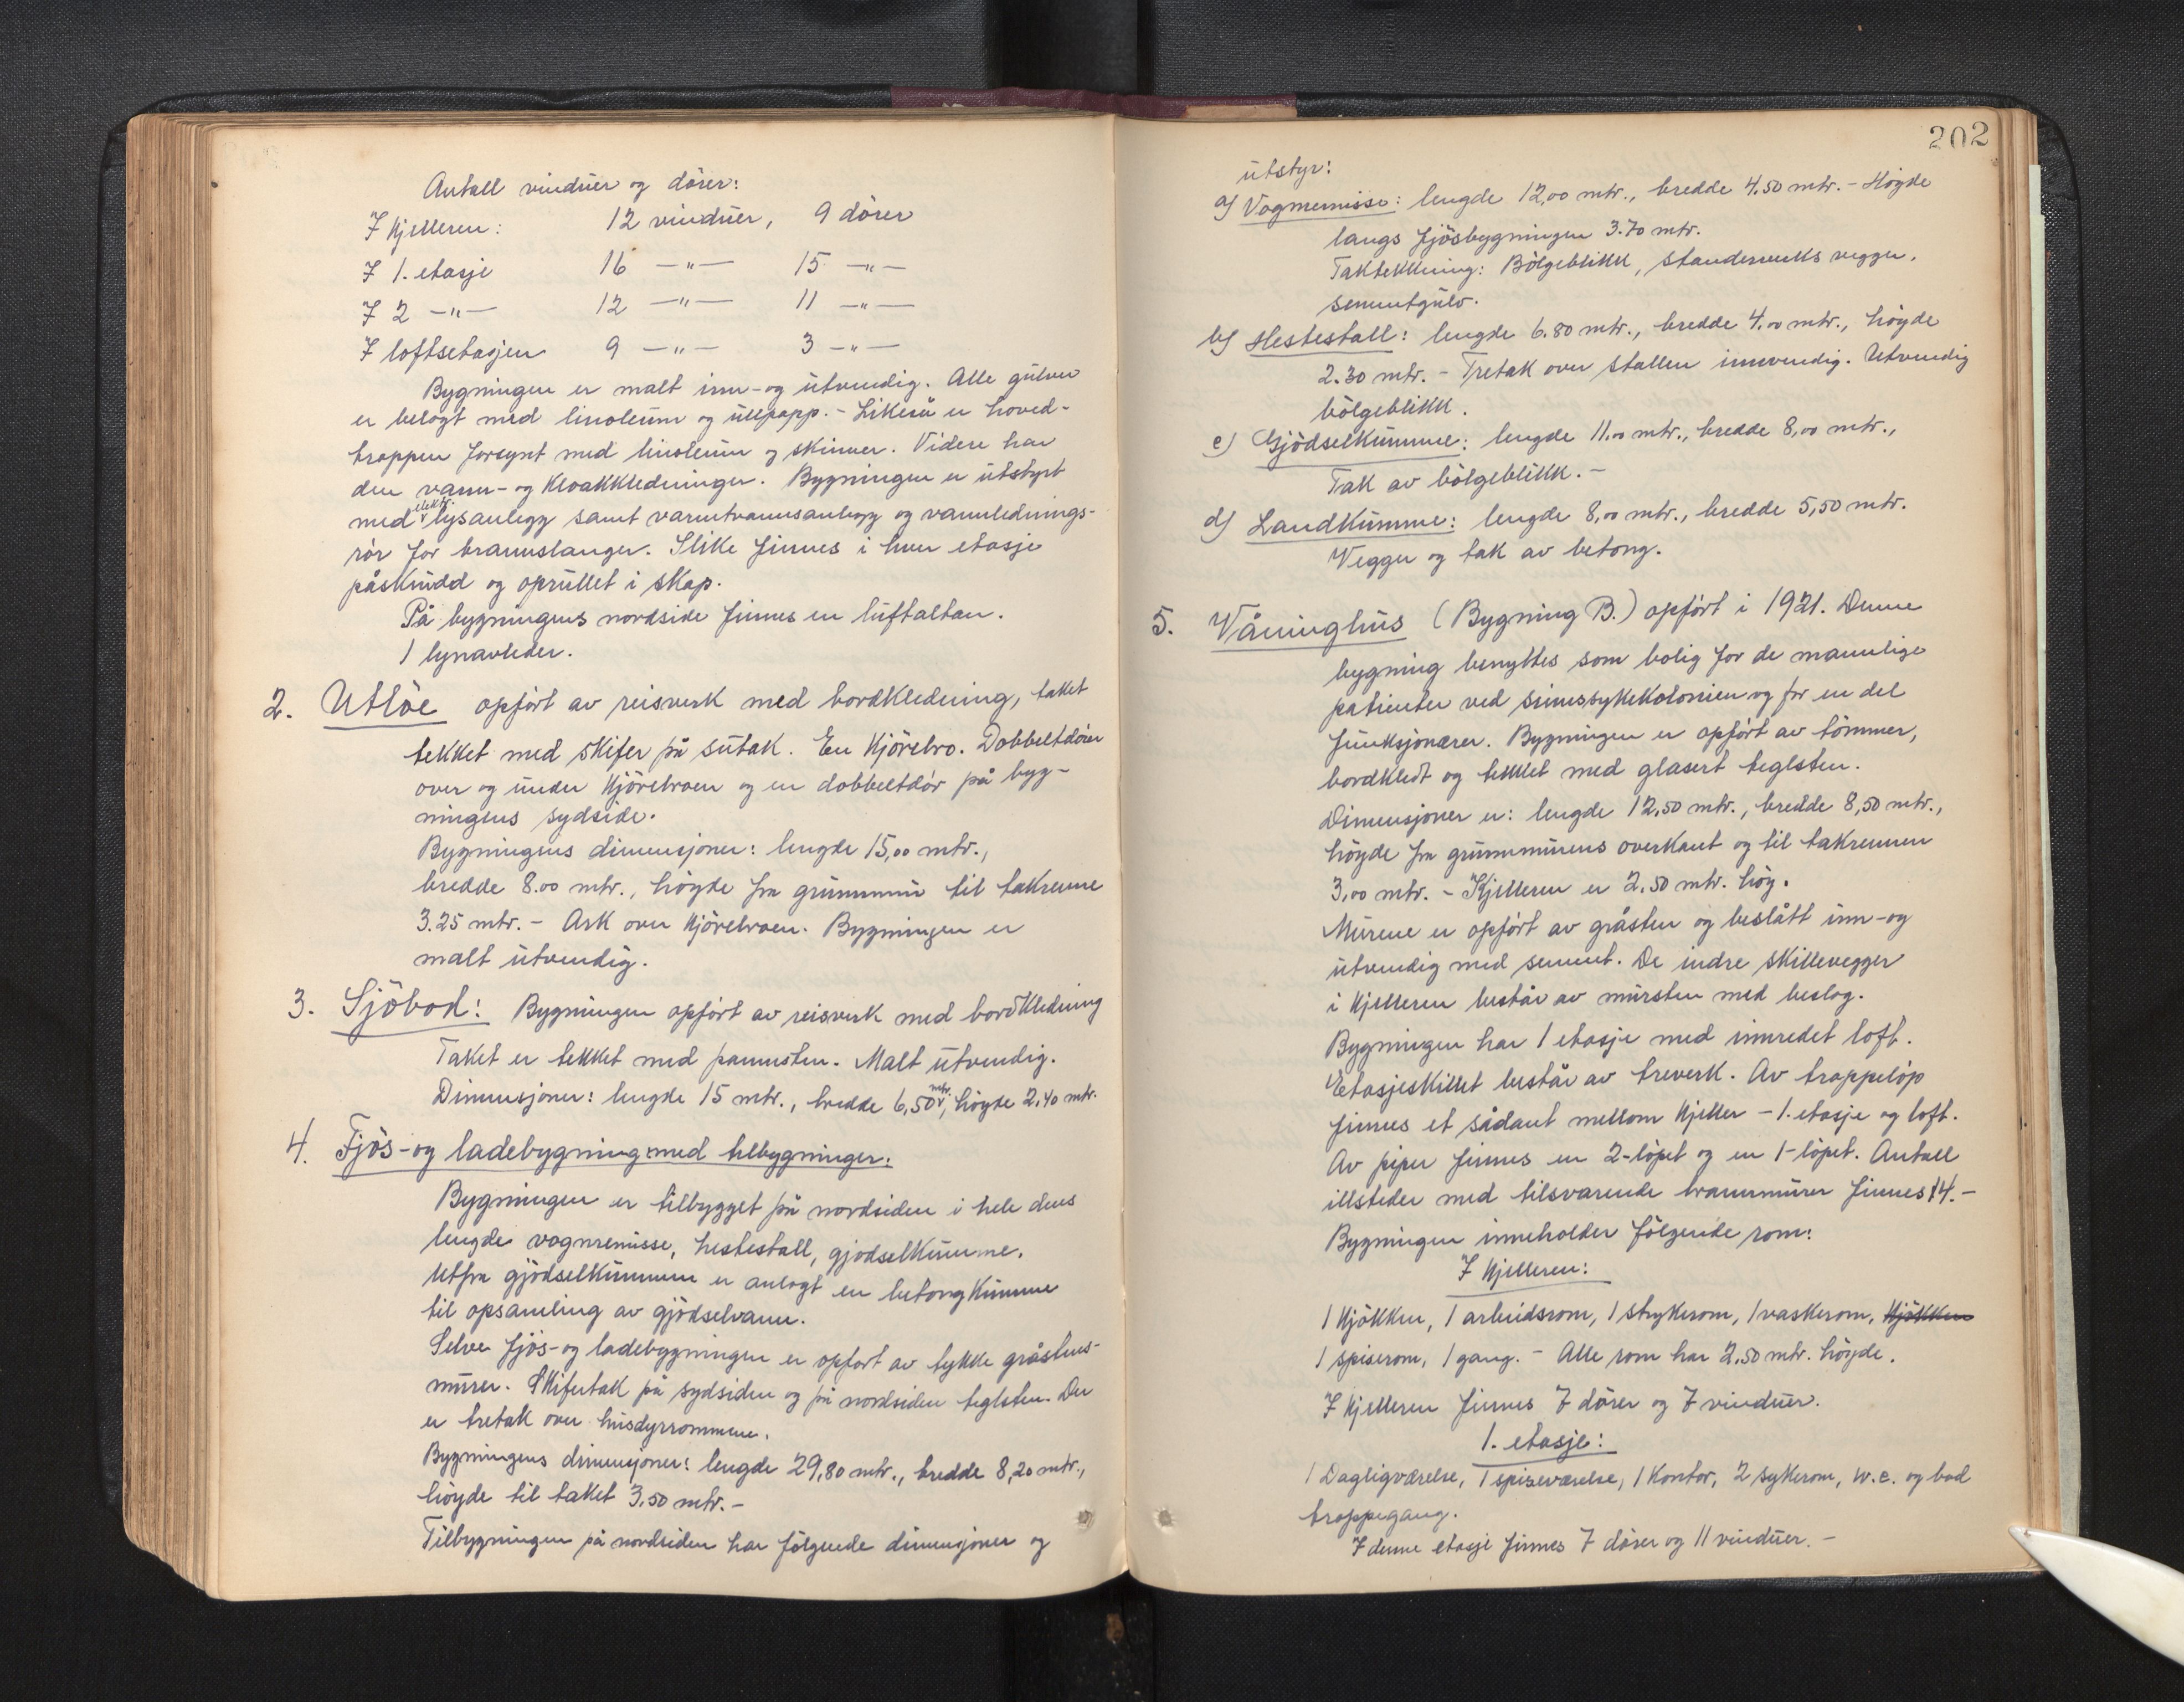 Antall vinduer og dörer:
I kjelleren: 12 vinduer, 9 dörer
I 1. etasje 16 —"— 15 —"—
I 2 —"— 12 —"— 11 —"—
I loftsetasjen 9 —"— 3 —"—
Bygningen er malt inn- og utvendig. Alle gulver
er belagt med linoleum og ullpapp. - Likeså er hoved-
trappen forsynt med linoleum og skinner. Videre har
den vann- og kloakkledninger. Bygningen er utstyrt
med elektr. lysanlegg samt varmtvannsanlegg og vannlednings-
rör for brannslanger. Slike finnes i hver etasje
påskrudd og oprullet i skap.
På bygningens nordside finnes en luftaltan.
1 lynavleder.
2. Utlöe opfört av reisverk med bordkledning, taket
tekket med skifer på sutak. En kjörebro. Dobbeltdörer
over og under kjörebroen og en dobbeltdör på byg-
ningens sydside.
Bygningens dimensjoner: lengde 15,00 mtr.,
bredde 8.00 mtr., höyde fra grunnmur til takrenne
3.25 mtr. - Ark over kjörebroen. Bygningen er
malt utvendig.
3. Sjöbod: Bygningen opfört av reisverk med bordkledning
Taket er tekket med pannesten. Malt utvendig.
Dimensjoner: lengde 15 mtr., bredde 6,50 mtr., höyde 2,40 mtr.
4. Fjös- og ladebygning med tilbygninger:
Bygningen er tilbygget på nordsiden i hele dens
lengde vognremisse, hestestall, gjödselkumme.
Utfra gjödselkummen er anlagt en betongkumme
til opsamling av gjödselvann.
Selve fjös- og ladebygningen er opfört av tykke gråstens-
murer. Skifertak på sydsiden og på nordsiden teglsten. Der
er tretak over husdyrrommene.
Bygningens dimensjoner: lengde 29,80 mtr., bredde 8,20 mtr.,
höyde til taket 3,50 mtr. -
Tilbygningen på nordsiden har fölgende dimensjoner og
202
utstyr:
a) Vognremisse: lengde 12,00 mtr., bredde 4.50 mtr. - Höyde
langs fjösbygningen 3.70 mtr.
Taktekkning: Bölgeblikk, standerverks vegger,
sementgulv.
b) Hestestall: lengde 6.80 mtr., bredde 4.00 mtr., höyde
2.30 mtr. - Tretak over stallen innvendig. Utvendig
bölgeblikk.
c) Gjödselkumme: lengde 11.00 mtr., bredde 8,00 mtr.,
Tak av bölgeblikk. -
d) Landkumme: lengde 8,00 mtr., bredde 5,50 mtr.
Vegger og tak av betong.
5. Våninghus (Bygning B.) opfört i 1921. Denne
bygning benyttes som bolig for de mannlige
patienter ved sinnssykekolonien og for en del
funksjonærer. Bygningen er opfört av tömmer,
bordkledt og tekket med glasert teglsten.
Dimensjoner er: lengde 12,50 mtr., bredde 8,50 mtr.,
höyde fra grunnmurens overkant og til takrennen
3,00 mtr. - Kjelleren er 2,50 mtr. höy.
Murene er opfört av gråsten og beslått inn- og
utvendig med sement. De indre skillevegger
i kjelleren består av mursten med beslag.
Bygningen har 1 etasje med innredet loft.
Etasjeskillet består av treverk. Av trappelöp
finnes et sådant mellom kjeller - 1. etasje og loft.
Av piper finnes en 2-löpet og en 1-löpet. Antall
illsteder med tilsvarende brannmurer finnes 14. -
Bygningen inneholder fölgende rom:
I kjelleren:
1 kjökken, 1 arbeidsrom, 1 strykerom, 1 vaskerom, kjökken
1 spiserom, 1 gang. - Alle rom har 2,50 mtr. höyde.
I kjelleren finnes 7 dörer og 7 vinduer.
1. etasje:
1 Dagligværelse, 1 spiseværelse, 1 kontor, 2 sykerom, w.c. og bad
trappegang.
I denne etasje finnes 7 dörer og 11 vinduer. -